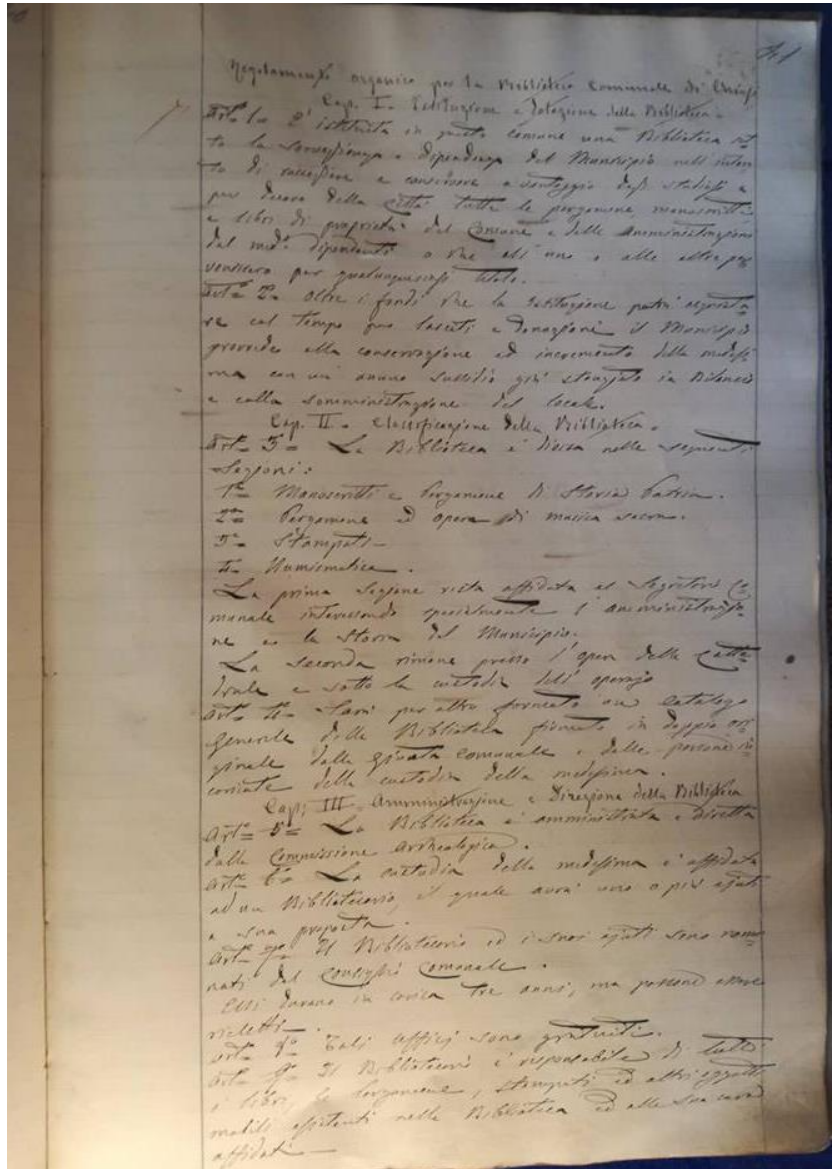 41
Regolamento organico per la Biblioteca Comunale di Chiusi
Cap. I = Istituzione e dotazione della Biblioteca =
Art. 1º = E' istituita in questo comune una Biblioteca sot=
to la sorveglianza e dipendenza del Municipio nell'inten=
to di raccogliere e conservare a vantaggio degli studiosi e
per decoro della Città tutte le pergamene, manoscritti
e libri di proprietà del Comune e delle Amministrazioni
dal med.º dipendenti o che all'uno o alle altre per
venissero per qualunquesiasi titolo.
Art. 2º = Oltre i fondi che la Istituzione potrà acquista=
re col tempo per lasciti e donazioni il Municipio
provvede alla conservazione ed incremento della medesi
ma con un annuo sussidio già stanziato in Bilancio
e colla somministrazione del locale.
Cap. II = Classificazione della Biblioteca =
Art. 3º = La Biblioteca è divisa nelle seguenti
Sezioni:
1ª = Manoscritti e Pergamene di Storia Patria.
2ª = Pergamene ed opere di musica sacra.
3ª = Stampati =
4ª = Numismatica.
La prima Sezione resta affidata al Segretario Co=
munale interessando specialmente l'amministrazio=
ne e la Storia del Municipio.
La seconda rimane presso l'opera della Catte=
drale e sotto la custodia dell'operajo
Art. 4º = Sarà per altro formato un Catalogo
generale della Biblioteca firmato in doppio ori=
ginale dalla Giunta Comunale e dalle persone in=
caricate della custodia della medesima.
Cap. III = Amministrazione e Direzione della Biblioteca
Art. 5º = La Biblioteca è amministrata e diretta
dalla Commissione Archeologica.
Art. 6º = La custodia della medesima è affidata
ad un Bibliotecario, il quale avrà uno o più ajuti
a sua proposta.
Art. 7º = Il Bibliotecario ed i suoi ajuti sono nomi=
nati dal Consiglio Comunale.
Essi durano in carica tre anni, ma possono essere
rieletti =
Art. 8º = Tali ufficj sono gratuiti.
Art. 9º = Il Bibliotecario è responsabile di tutti
i libri, le pergamene, stampati ed altri oggetti
mobili esistenti nella Biblioteca ed alla sua cura
affidati =